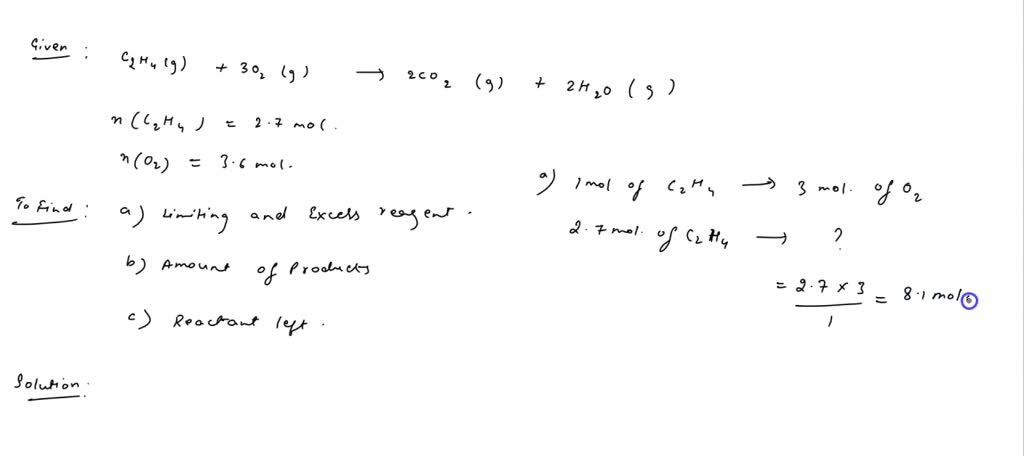 Given : C₂H₄(g) + 3O₂ (g) → 2CO₂ (g) + 2H₂O (g)
n(C₂H₄) = 2.7 mol.
n(O₂) = 3.6 mol.
To Find : a) Limiting and Excess reagent.
b) Amount of Products
c) Reactant left.
Solution:
a) 1 mol of C₂H₄ → 3 mol. of O₂
2.7 mol. of C₂H₄ → ?
= 2.7 × 3 / 1 = 8.1 mol